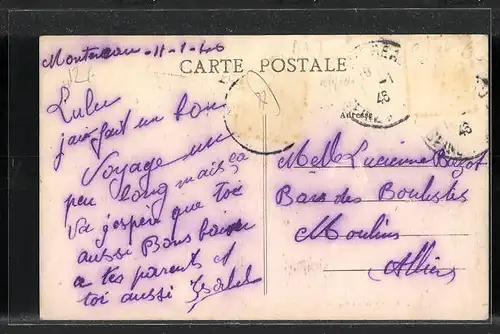 Montereau - 11-1-46
CARTE POSTALE
Lulu
jai fait un bon
Voyage un
peu long mais ça
Va j'espère que toi
aussi Bons baiser
a tes parents et
toi aussi Isabel
Adresse
45
45
Melle Lucienne Bazot
Bar des Boulistes
Moulins
Allier